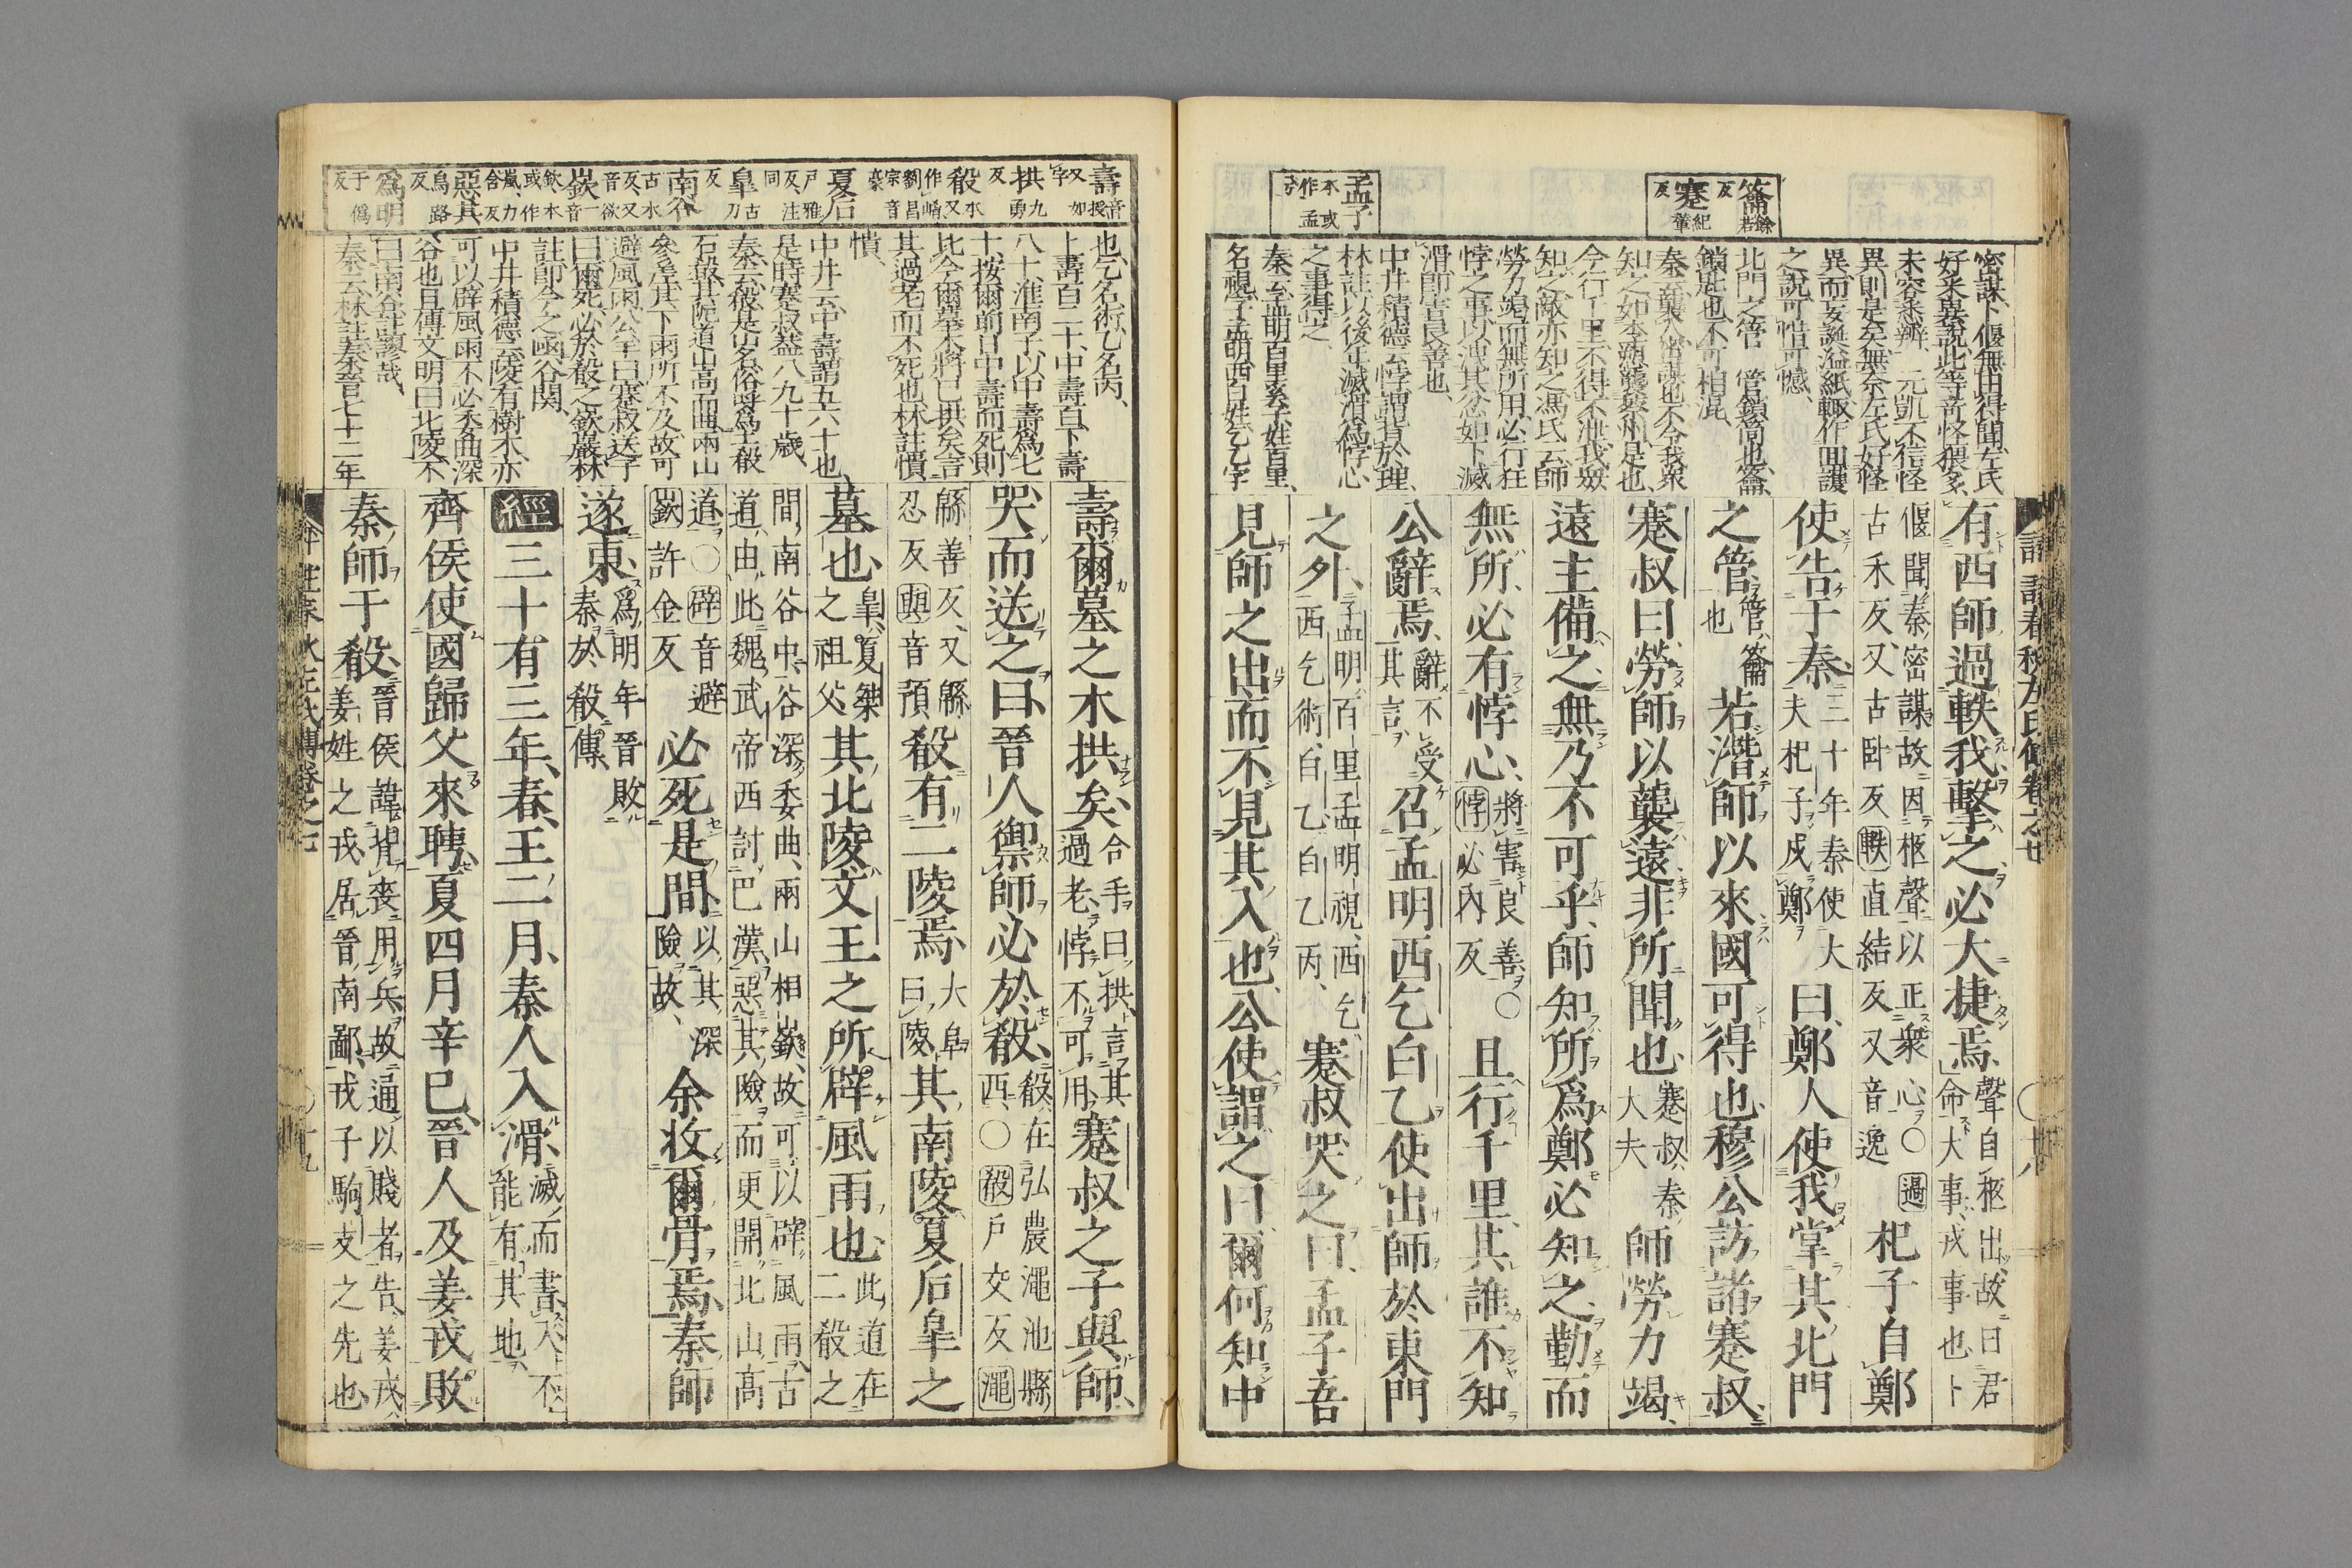 籥餘若反
蹇紀輦反
孟子本或作孟兮
密謀卜偃無由得聞左氏
好采異說此等奇怪猥多
未容悉辨、元凱不信怪
異則是矣無奈左氏好怪
異而妄誕溢紙輒作回護
之說可惜可憾、
北門之管 管鎖筒也籥
鎖匙也不可相混、
秦云襲人密謀也不令我衆
知之如李愬襲蔡州是也
今行千里不得不泄我衆
知之敵亦知之馮氏云師
勞力竭而無所用必行狂
悖之事以洩其忿如下滅
滑即害良善也
中井積德云悖謂背於理、
林註以後年滅滑爲悖心
之事得之、
秦云孟明百里奚子姓百里、
名視字孟明西白姓乞乙字
有西師過軼我擊之必大捷焉
聲自柩出故曰君
命大事戎事也卜
偃聞秦密謀故因柩聲以正衆心〇過
古禾反又古卧反軼直結反又音逸
杞子自鄭
使告于秦
三十年秦使大
夫杞子戍鄭
曰鄭人使我掌其北門
之管
管籥
也
若潛師以來國可得也穆公訪諸蹇叔
蹇叔曰勞師以襲遠非所聞也
蹇叔秦
大夫
師勞力竭
遠主備之無乃不可乎師知所爲鄭必知之勤而
無所必有悖心
將害良善〇
悖必內反
且行千里其誰不知
公辭焉
辭不受
其言
召孟明西乞白乙使出師於東門
之外
孟明百里孟明視西乞
西乞術白乙白乙丙
蹇叔哭之曰孟子吾
見師之出而不見其入也公使謂之曰爾何知中
壽音授又如字
拱九勇反
殽本又作崤劉昌宗音豪
夏后戶雅反注同
皐古刀反
南谷古木反又音欲
嶔音欽一本或作嵐力含反
惡其烏路反
爲明于僞反
也乞名術乙名丙、
上壽百二十中壽百下壽
八十淮南子以中壽爲七
十按爾前日中壽而死則
比今爾墓木將已拱矣言
其過老而不死也林註憒
憒、
中井云中壽謂五六十也
是時蹇叔蓋八九十歲、
秦云殽是山名俗呼爲土殽
石殽其阨道山高而曲兩山
參差其下雨所不及故可
避風雨公羊曰蹇叔送子
曰爾死必於殽之嶔巖林
註即今之函谷関、
中井積德云陵有樹木亦
可以辟風雨不必委曲深
谷也且傳文明曰北陵不
曰南谷註謬哉
秦云林註秦晉七十二年
壽爾墓之木拱矣
合手曰拱言其
過老悖不可用
蹇叔之子與師
哭而送之曰晉人禦師必於殽
殽在弘農澠池縣
西〇殽戶交反澠
緜善反又緜
忍反與音預
殽有二陵焉
大阜
曰陵
其南陵夏后皐之
墓也
皐夏桀
之祖父
其北陵文王之所辟風雨也
此道在
二殽之
間南谷中谷深委曲兩山相嶔故可以辟風雨古
道由此魏武帝西討巴漢惡其險而更開北山高
道〇辟音避
嶔許金反
必死是間
以其深
險故
余收爾骨焉秦師
遂東
爲明年晉敗
秦於殽傳
經三十有三年春王二月秦人入滑
滅而書入不
能有其地
齊侯使國歸父來聘夏四月辛巳晉人及姜戎敗
秦師于殽
晉侯諱背喪用兵故通以賤者告姜戎
姜姓之戎居晉南鄙戎子駒支之先也